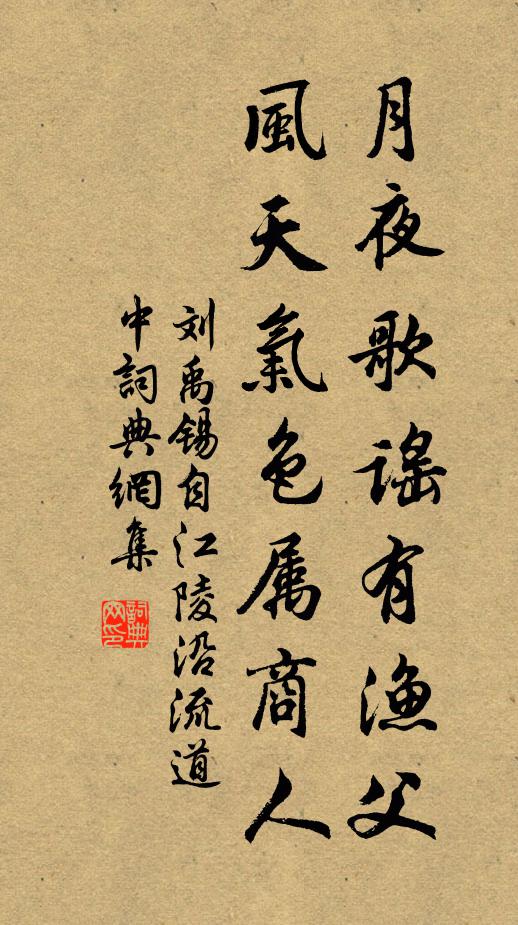 月夜歌謠有漁父
風天氣色属商人
刘禹锡自江陵沿流道
中詞典網集
詞典网印